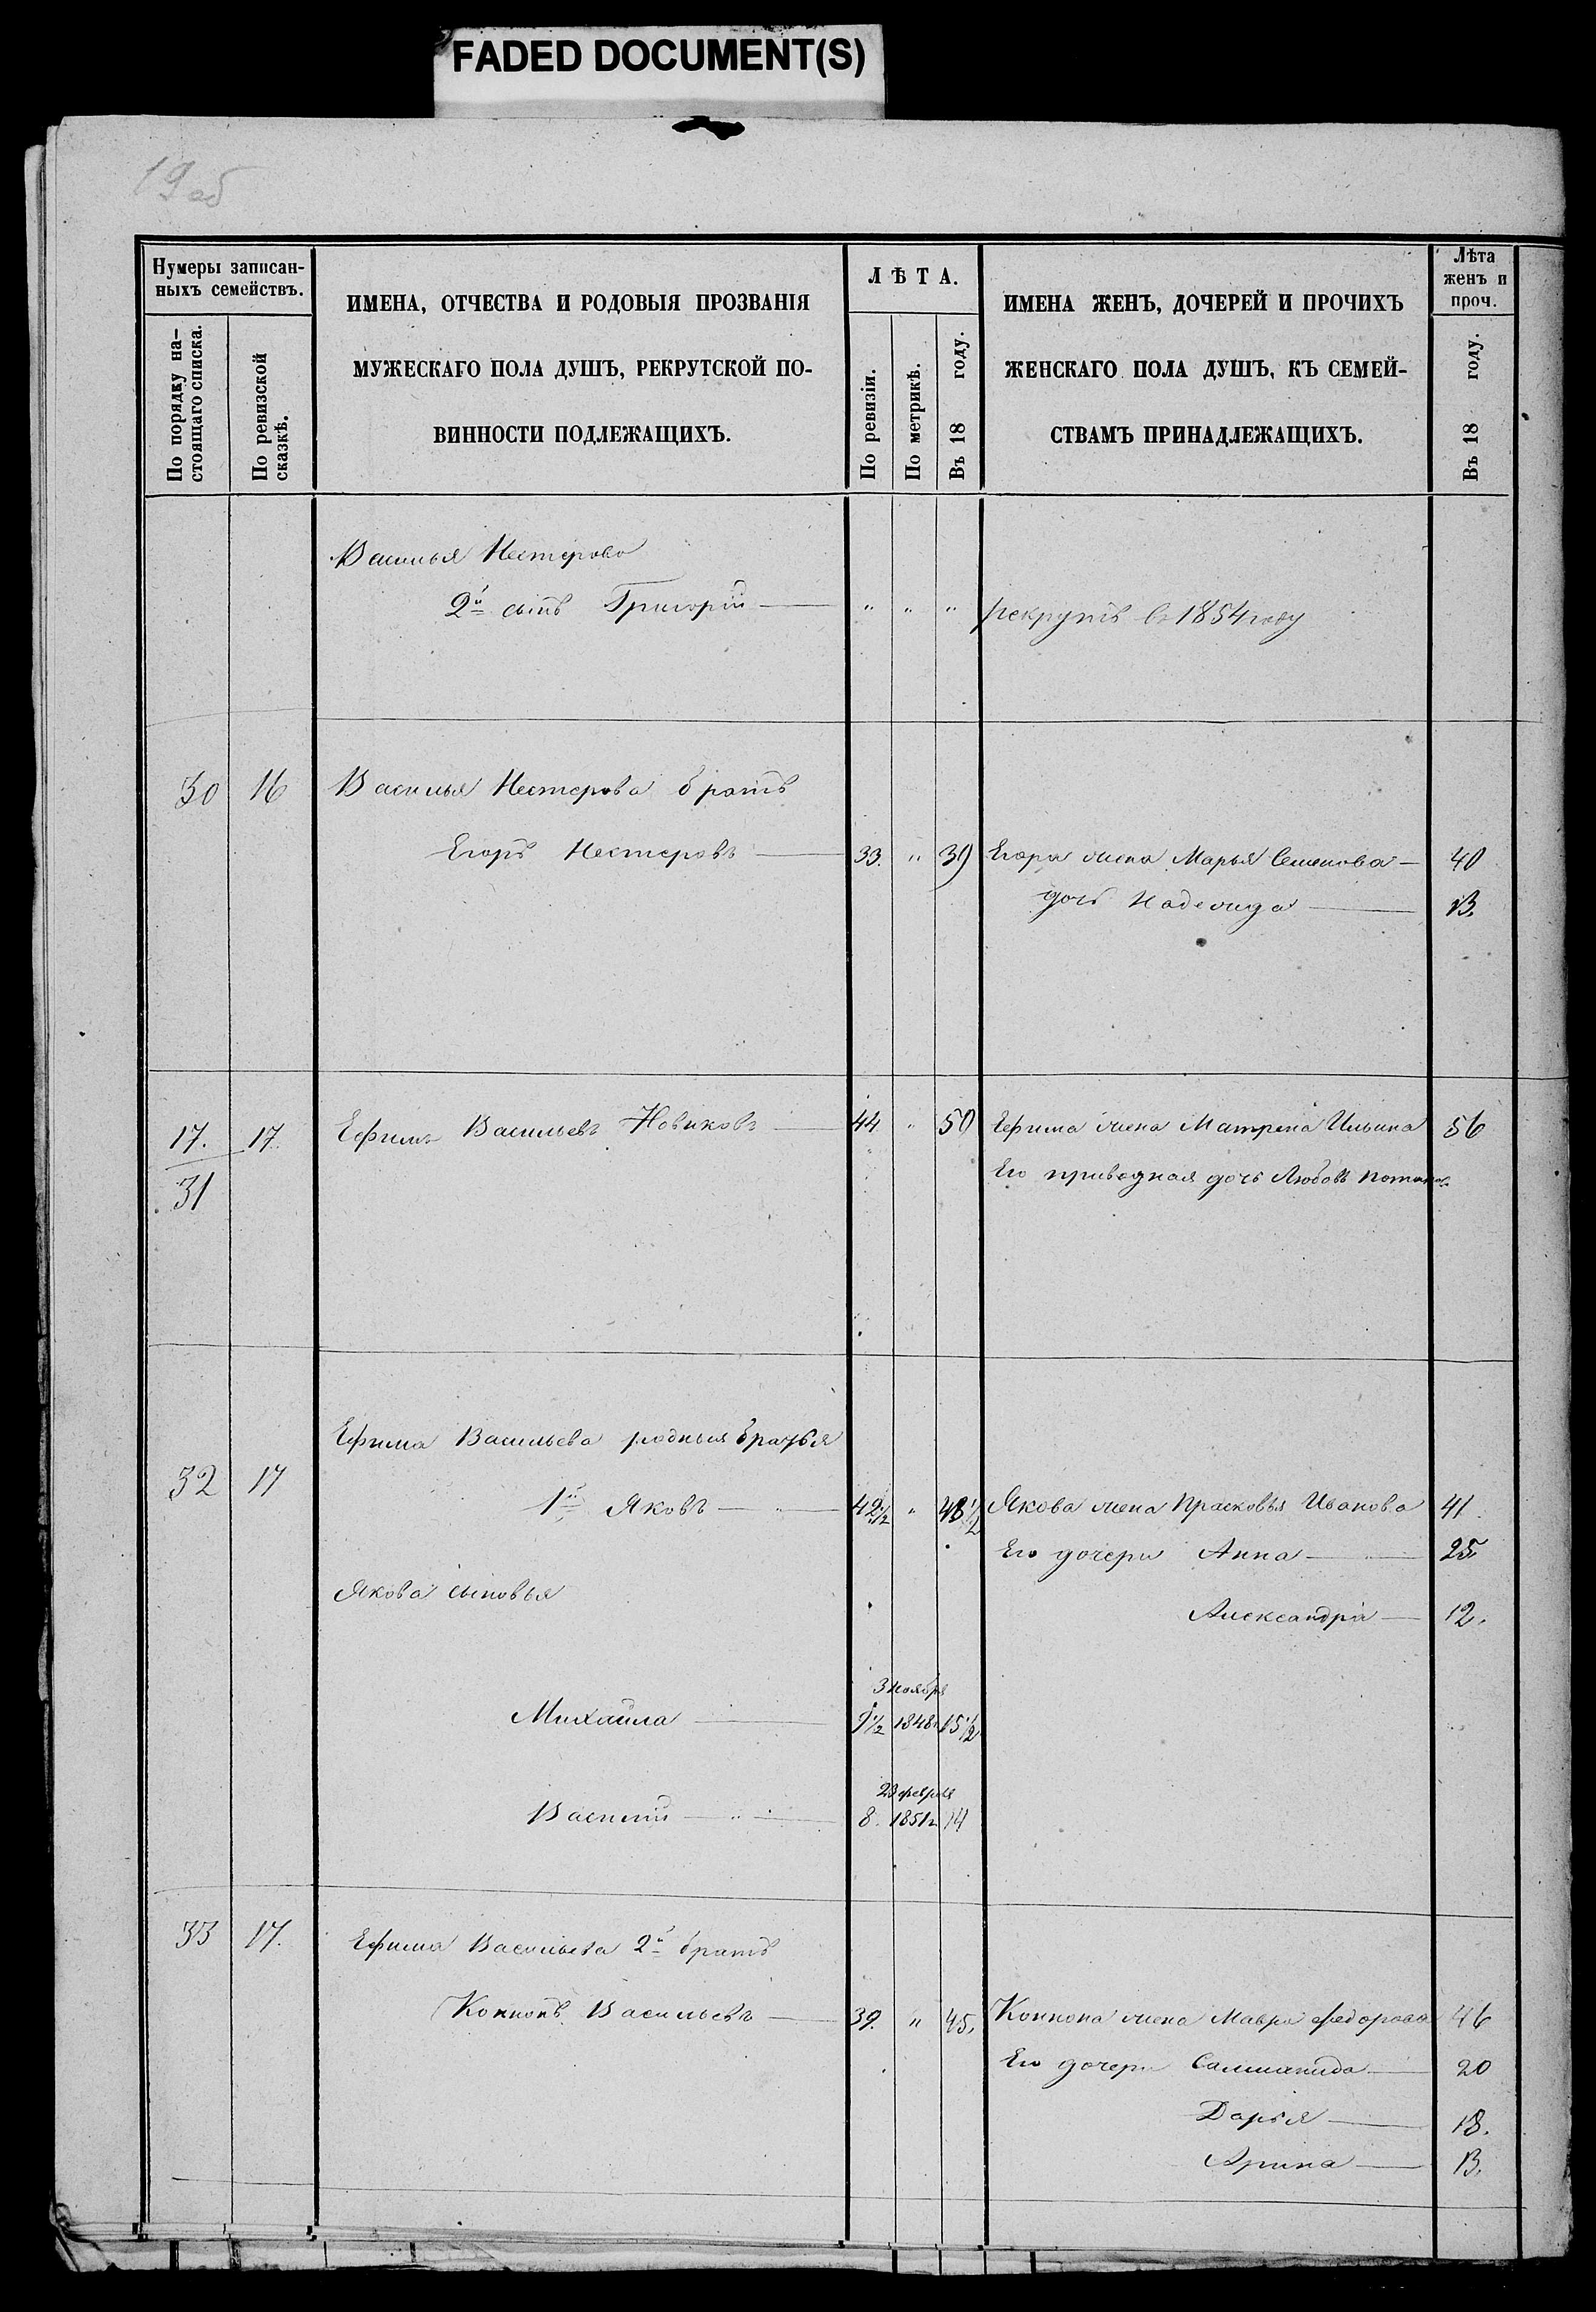 FADED DOCUMENT(S)
19об
Нумеры записан-
ныхъ семействъ.
По порядку на-
стоящаго списка.
По ревизской
сказкѣ.
ИМЕНА, ОТЧЕСТВА И РОДОВЫЯ ПРОЗВАНІЯ
МУЖЕСКАГО ПОЛА ДУШЪ, РЕКРУТСКОЙ ПО-
ВИННОСТИ ПОДЛЕЖАЩИХЪ.
ЛѢТА.
По ревизіи.
По метрикѣ.
Въ 18 году.
ИМЕНА ЖЕНЪ, ДОЧЕРЕЙ И ПРОЧИХЪ
ЖЕНСКАГО ПОЛА ДУШЪ, КЪ СЕМЕЙ-
СТВАМЪ ПРИНАДЛЕЖАЩИХЪ.
Лѣта
женъ и
проч.
Въ 18 году.
Василья Нестерова
2й сынъ Григорій — " " " рекрутъ в 1854 году
30 16 Василья Нестерова братъ
Егоръ Нестеровъ — 33. " 39 Егора жена Марья Семенова — 40
дочь Надежда — 13.
17. 17. Ефимъ Васильевъ Новиковъ — 44 " 50 Ефима жена Матрена Ильина 56
31 Его приводная дочь Любовь
Ефима Васильева родныя братья
32 17 1й Яковъ — 42½ " 48½ Якова жена Прасковья Иванова 41
Его дочери Анна — 25.
Якова сыновья
Александра — 12.
3 ноября
Михаила — 9½ 1848 15½
23 февраля
Василій — 8. 1851г 14
33 17. Ефима Васильева 2й братъ
Кононъ Васильевъ — 39. " 45. Конона жена Мавра Федорова 46
Его дочери Саломанида — 20
Дарья — 18.
Арина — 13.